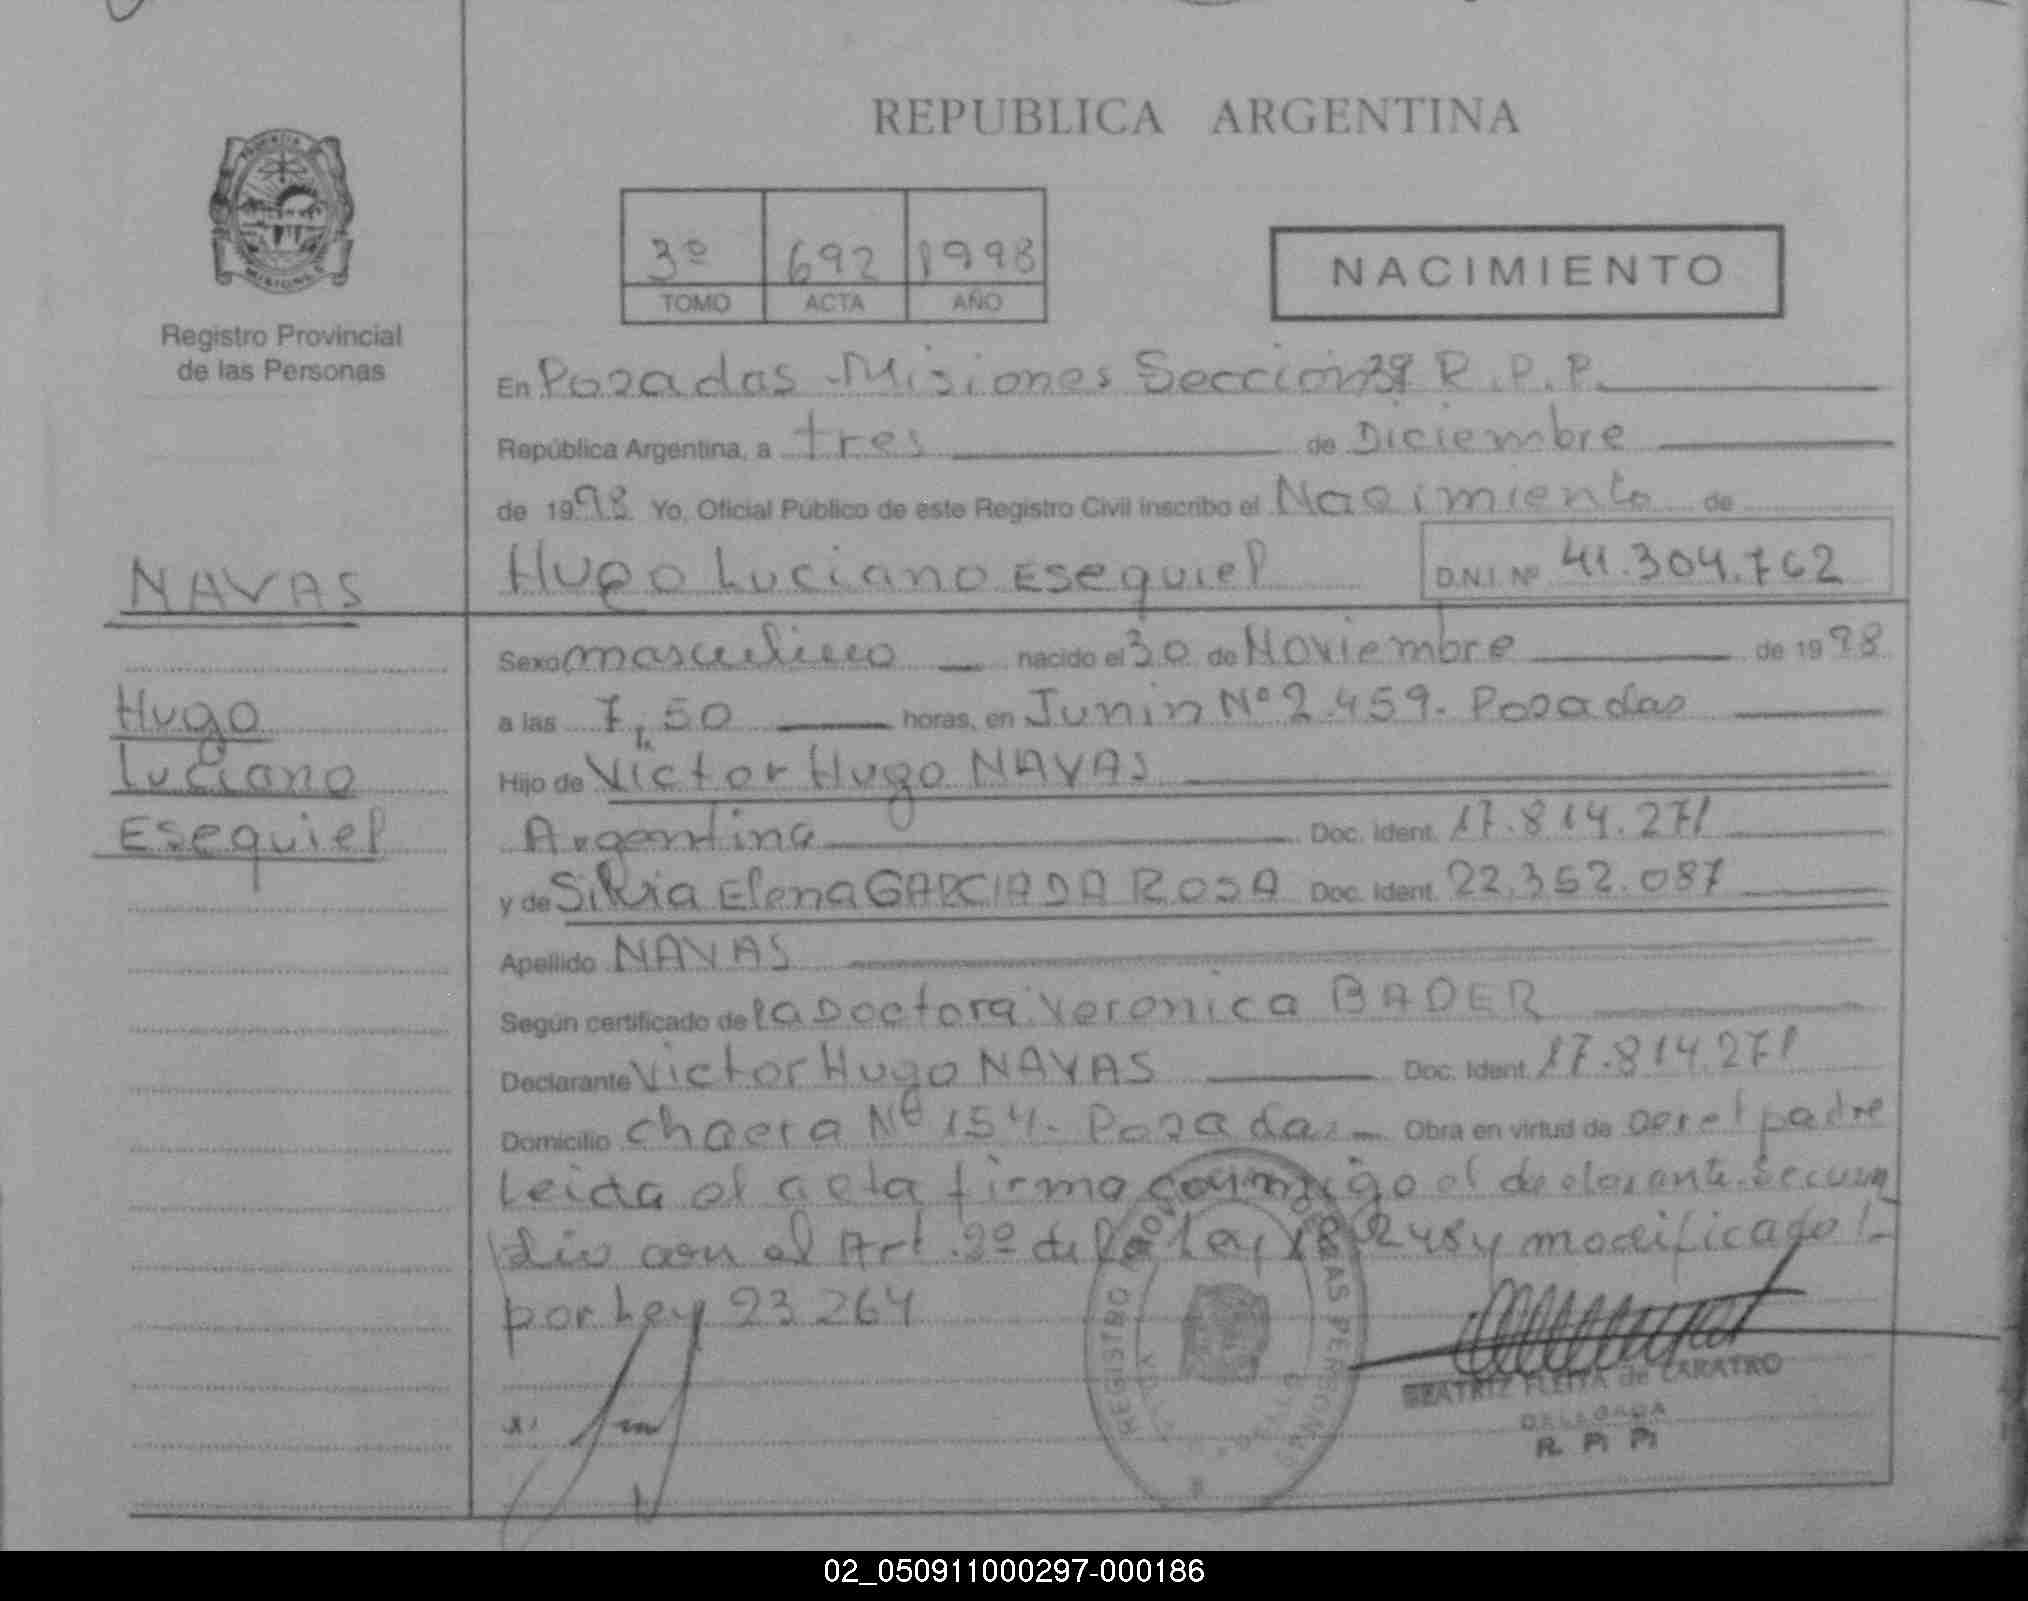 REPUBLICA ARGENTINA
PROVINCIA
MISIONES
Registro Provincial
de las Personas
3º 692 1998
TOMO ACTA AÑO
NACIMIENTO
En Posadas - Misiones Sección R.P.P.
República Argentina, a tres de Diciembre
de 1998 Yo, Oficial Público de este Registro Civil inscribo el Nacimiento de
NAVAS
Hugo Luciano Esequiel D.N.I. Nº 41.304.762
Sexo masculino nacido el 30 de Noviembre de 1998
Hugo
a las 7,50 horas, en Junin Nº 2.459 - Posadas
Luciano
Hijo de Victor Hugo NAVAS
Esequiel
Argentina Doc. Ident. 17.814.271
y de Silvia Elena GARCIA DA ROSA Doc. Ident. 22.352.087
Apellido NAVAS
Según certificado de la Doctora Veronica BADER
Declarante Victor Hugo NAVAS Doc. Ident. 17.814.271
Domicilio chacra Nº 154 - Posadas - Obra en virtud de ser el padre
Leida el acta firma conmigo el declarante
con el Art. 2º de la Ley 18.248 y modificado
por Ley 23.264
REGISTRO PROVINCIAL DE LAS PERSONAS
BEATRIZ FLEITA de CARATRO
DELEGADA
R. P. P.
02_050911000297-000186